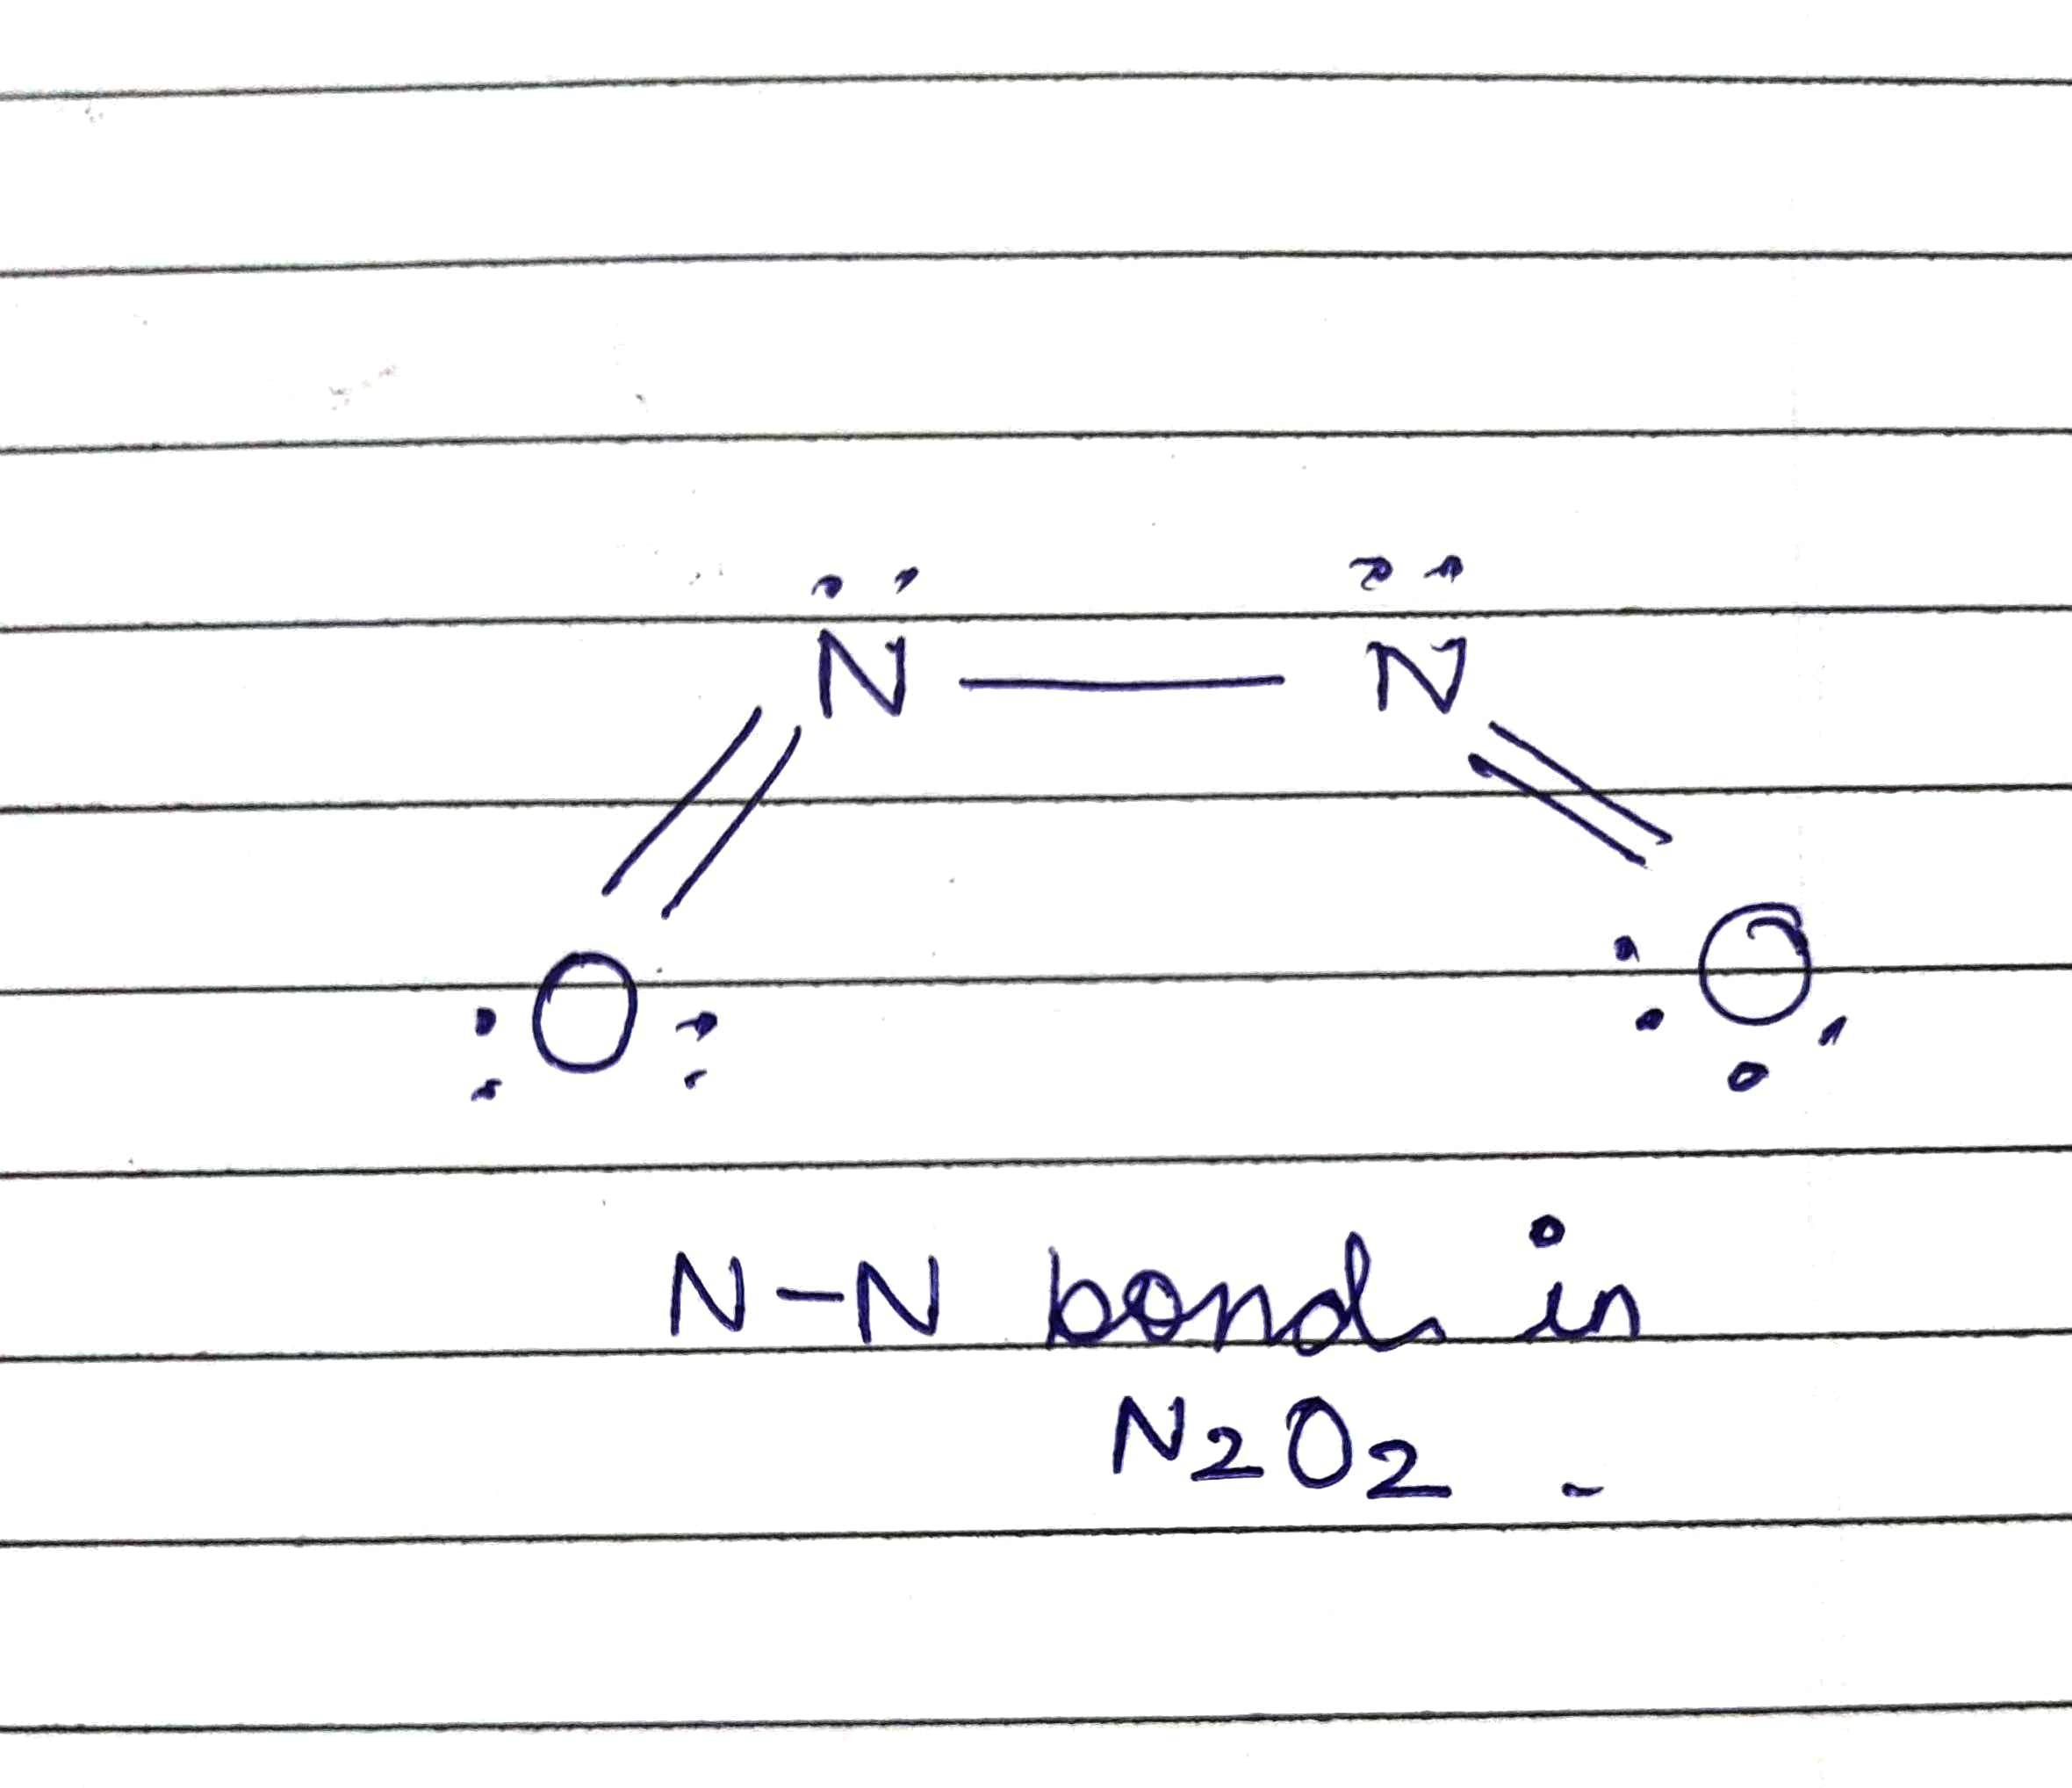 N — N
O O
N-N bonds in
N2O2 -